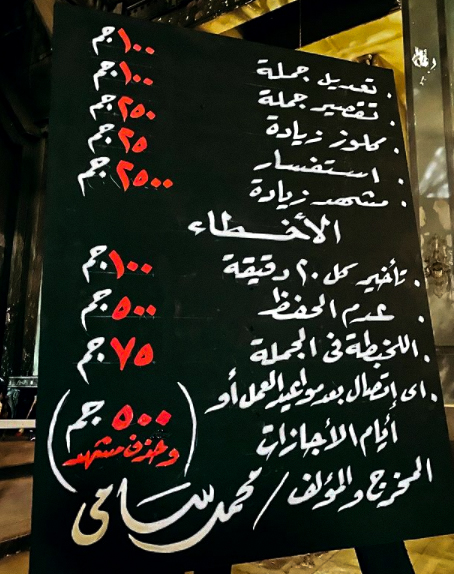 . تعديل جملة ١٠٠ جم
. تقصير جملة ١٠٠ جم
. كلوز زيادة ٢٥٠ جم
. استفسار ٢٥ جم
. مشهد زيادة ٢٥٠٠ جم
الأخطاء
. تأخير كل ٢٠ دقيقة ١٠٠ جم
. عدم الحفظ ٥٠٠ جم
. اللخبطة فى الجملة ٧٥ جم
. اى إتصال بعد مواعيد العمل أو
أيام الأجازات (٥٠٠ جم
وحذف مشهد)
المخرج والمؤلف / محمد سامى